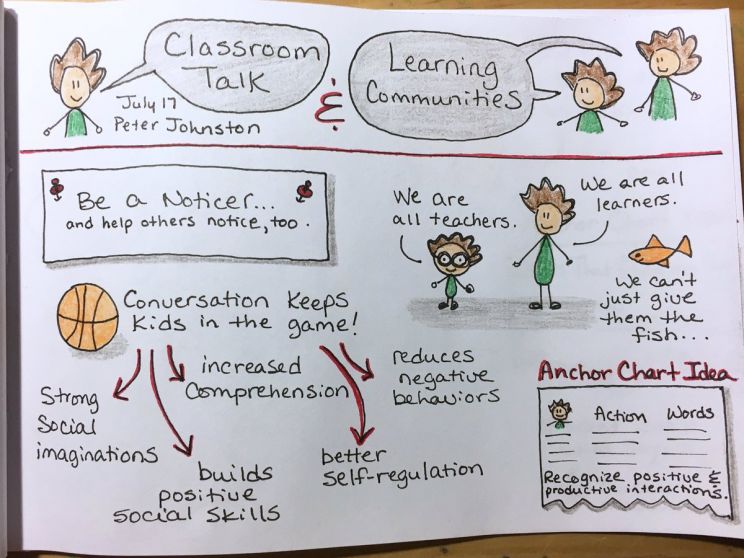 Classroom
Talk
July 17
Peter Johnston
&
Learning
Communities
Be a Noticer...
and help others notice, too.
We are
all teachers.
We are all
learners.
We can't
just give
them the
fish...
Conversation keeps
kids in the game!
Strong
Social
imaginations
increased
Comprehension
builds
positive
Social Skills
better
self-regulation
reduces
negative
behaviors
Anchor Chart Idea
Action Words
Recognize positive &
productive interactions.